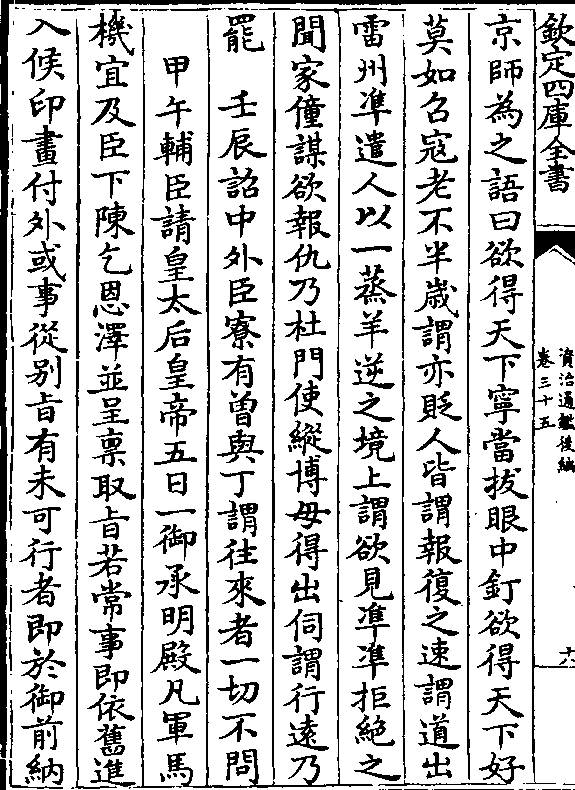 欽定四庫全書
資治通鑑後編
卷三十五
十
京師為之語曰欲得天下寧當拔眼中釘欲得天下好
莫如召宼老不半歲謂亦貶人皆謂報復之速謂道出
雷州凖遣人以一蒸羊逆之境上謂欲見凖凖拒絶之
聞家僮謀欲報仇乃杜門使縱博毋得出伺謂行逺乃
罷　壬辰詔中外臣寮有曽與丁謂往來者一切不問
甲午輔臣請皇太后皇帝五日一御承明殿凡軍馬
機宜及臣下陳乞恩澤並呈禀取㫖若常事即依舊進
入候印畫付外或事從别㫖有未可行者即於御前納